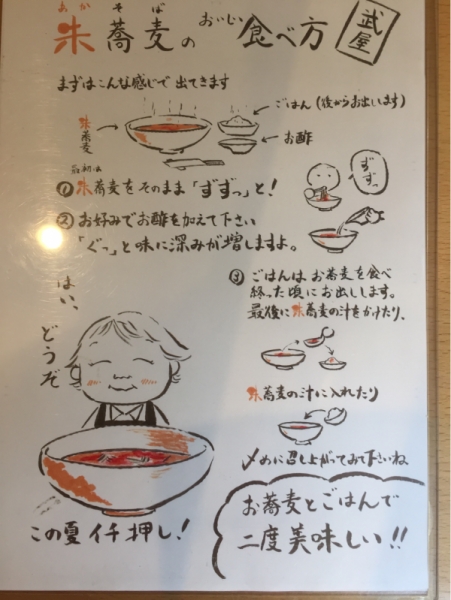 あか そば
朱蕎麦の おいしい 食べ方
武屋
まずはこんな感じで出てきます
朱蕎麦
ごはん(後からお出しします)
お酢
最初は
① 朱蕎麦をそのまま「ずずっ」と!
ずずっ
② お好みでお酢を加えて下さい
「ぐっ」と味に深みが増しますよ。
③ ごはんはお蕎麦を食べ
終った頃にお出しします。
最後に朱蕎麦の汁をかけたり、
朱蕎麦の汁に入れたり
〆めに召し上がってみて下さいね
はい、
どうぞ
この夏イチ押し!
お蕎麦とごはんで
二度美味しい!!